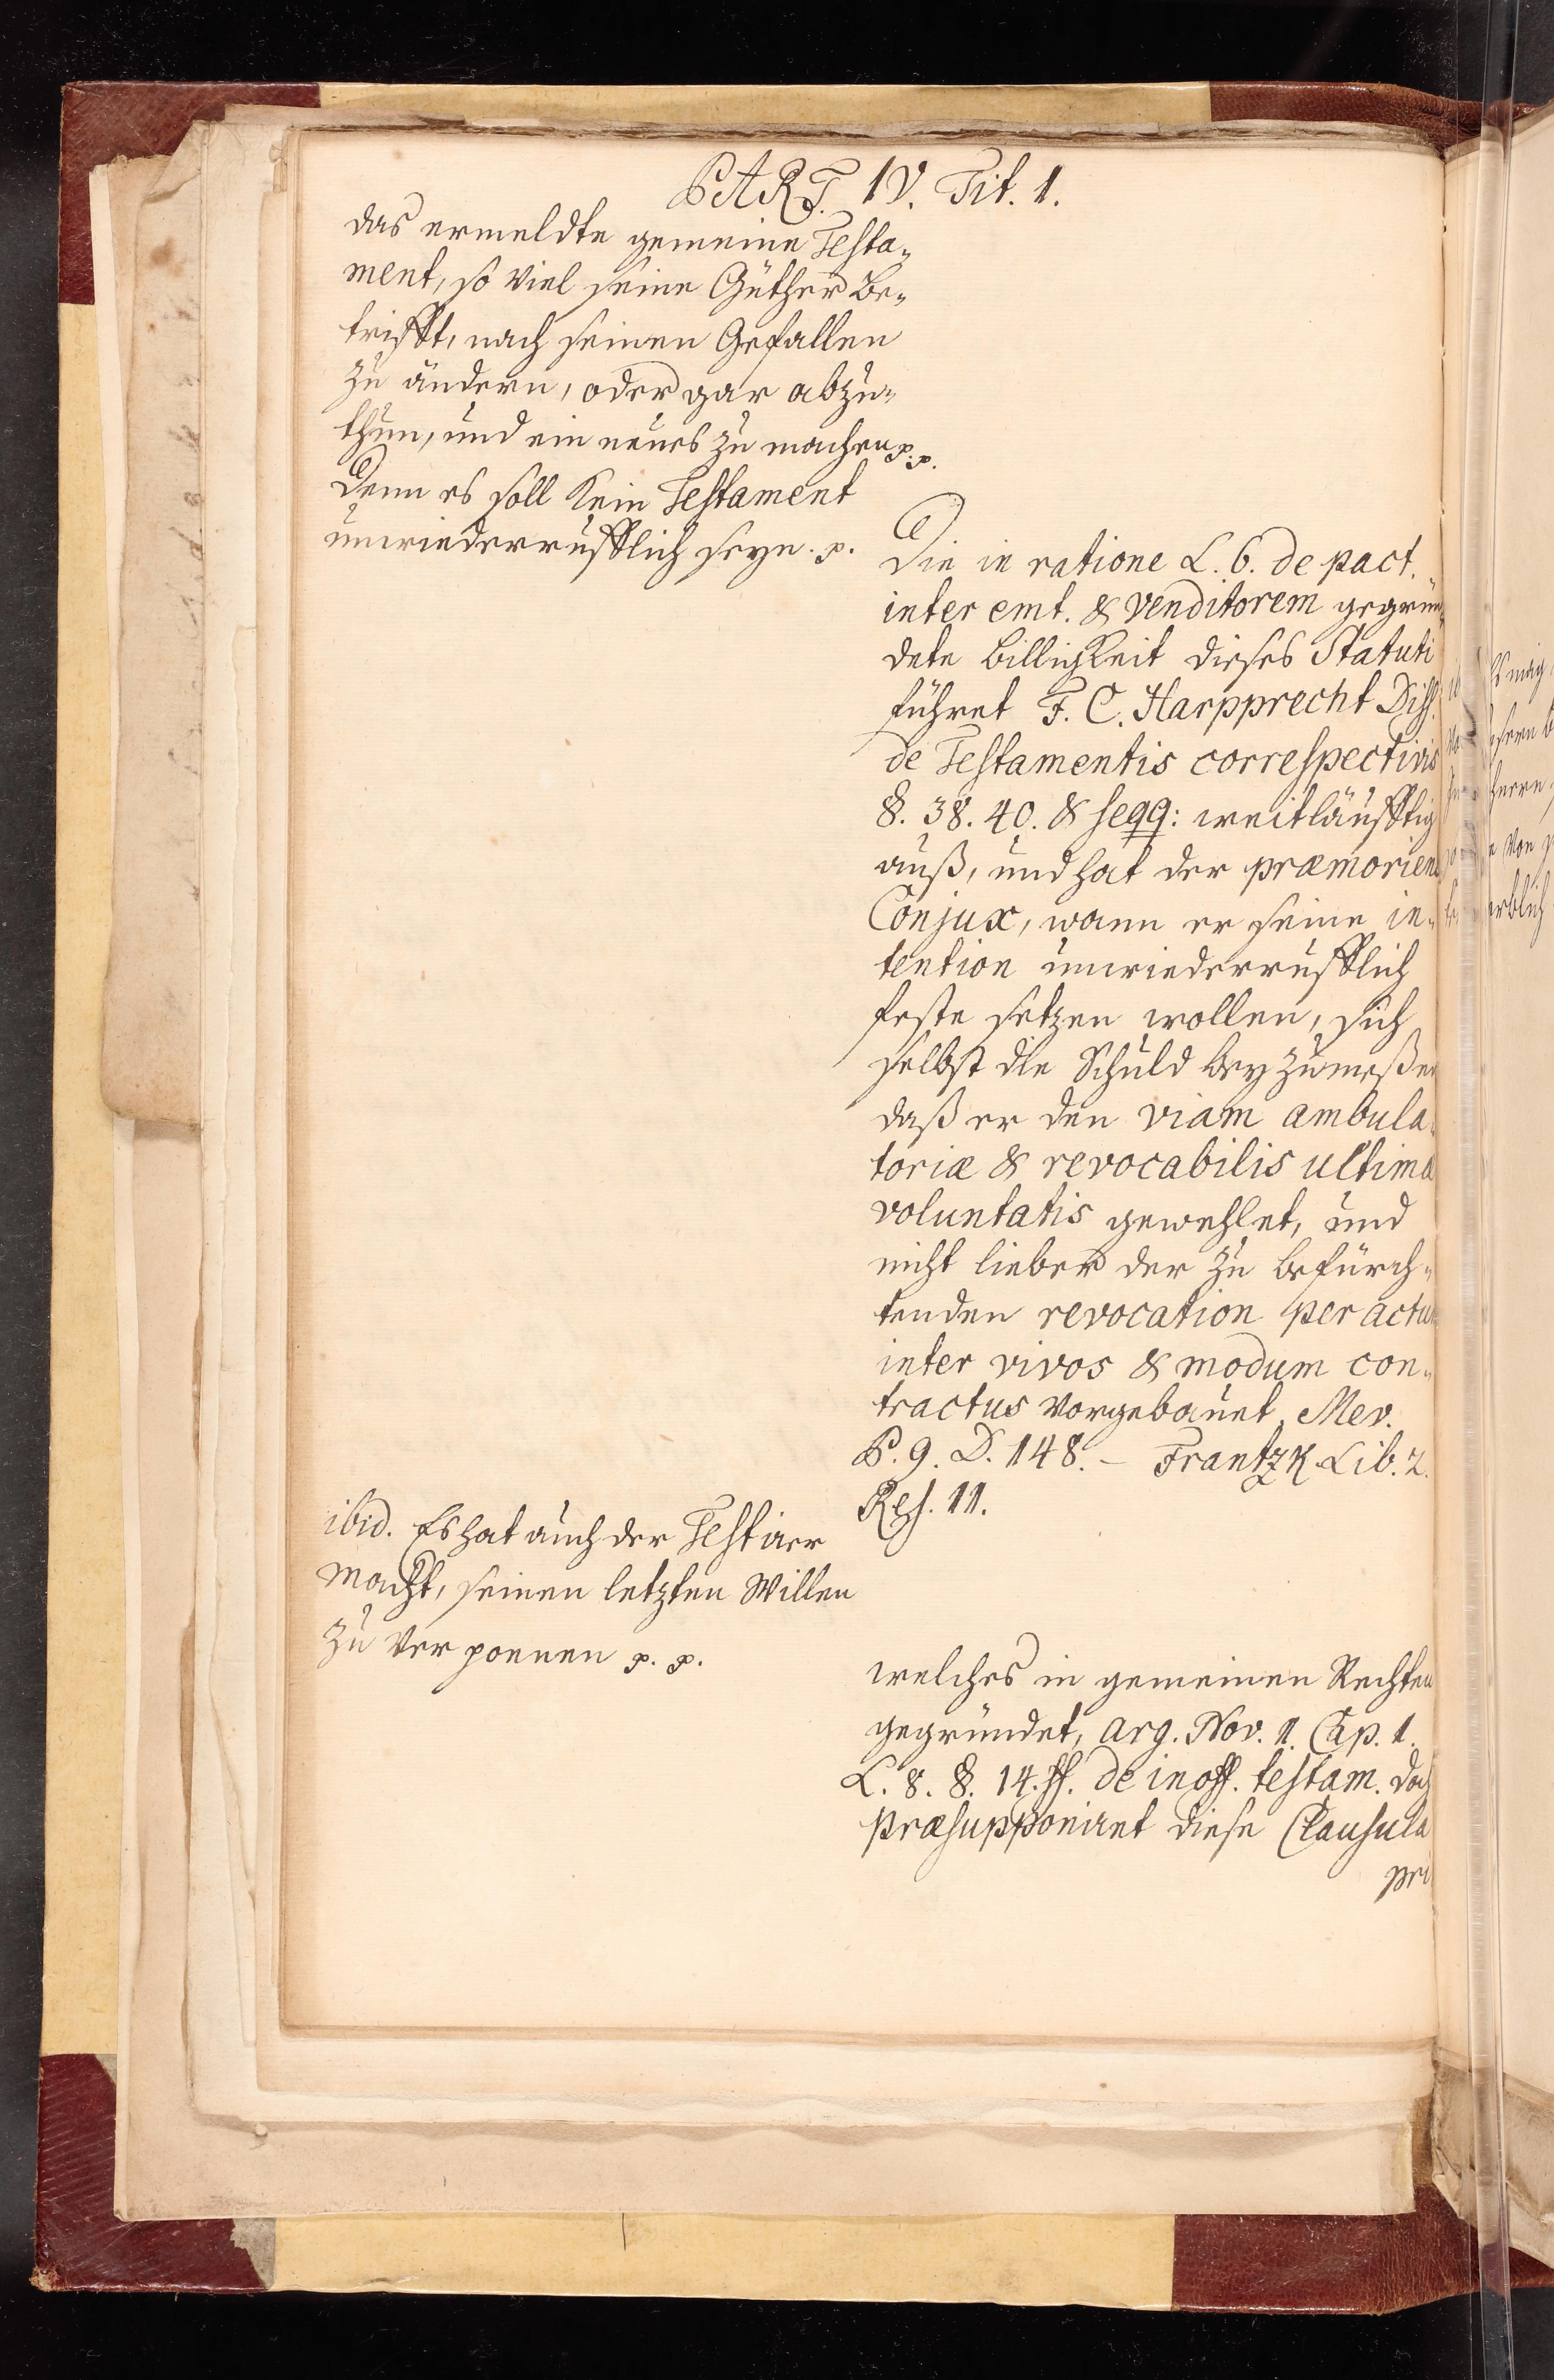 PART. IV. Tit. 1.
das ermeldte gemeine Testa-
ment, so viel seine Güther be-
trifft, nach seinen Gefallen
zu ändern, oder gar abzu-
thun, und ein neues zu machen p. p.
Denn es soll kein Testament
unwiederrufflich seyn. p.
Die in ratione L. 6. de pact.
inter emt. & venditorem gegrün-
dete Billigkeit dieses Statuti
führet F. C. Harpprecht Diss.
de Testamentis correspectivis
§. 38. 40. & seqq: weitläufftig
auß, und hat der præmoriens
Conjux, wann er seine in-
tention unwiederrufflich
feste setzen wollen, sich
selbst die Schuld beyzumeßen
daß er den viam ambula-
toriæ & revocabilis ultimæ
voluntatis gewehlet, und
nicht lieber der zu befürch-
tenden revocation per actum
inter vivos & modum con-
tractus vorgebauet. Mev.
P. 9. D. 148. - Frantzk Lib. 2.
Res. 11.
ibid. Es hat auch der Testirer
macht, seinen letzten Willen
zu verpoenen p. p.
welches in gemeinen Rechten
gegründet, arg. Nov. 1. Cap. 1.
L. 8. §. 14. ff. de inoff. testam. doch
præsupponiret diese Clausula
pri